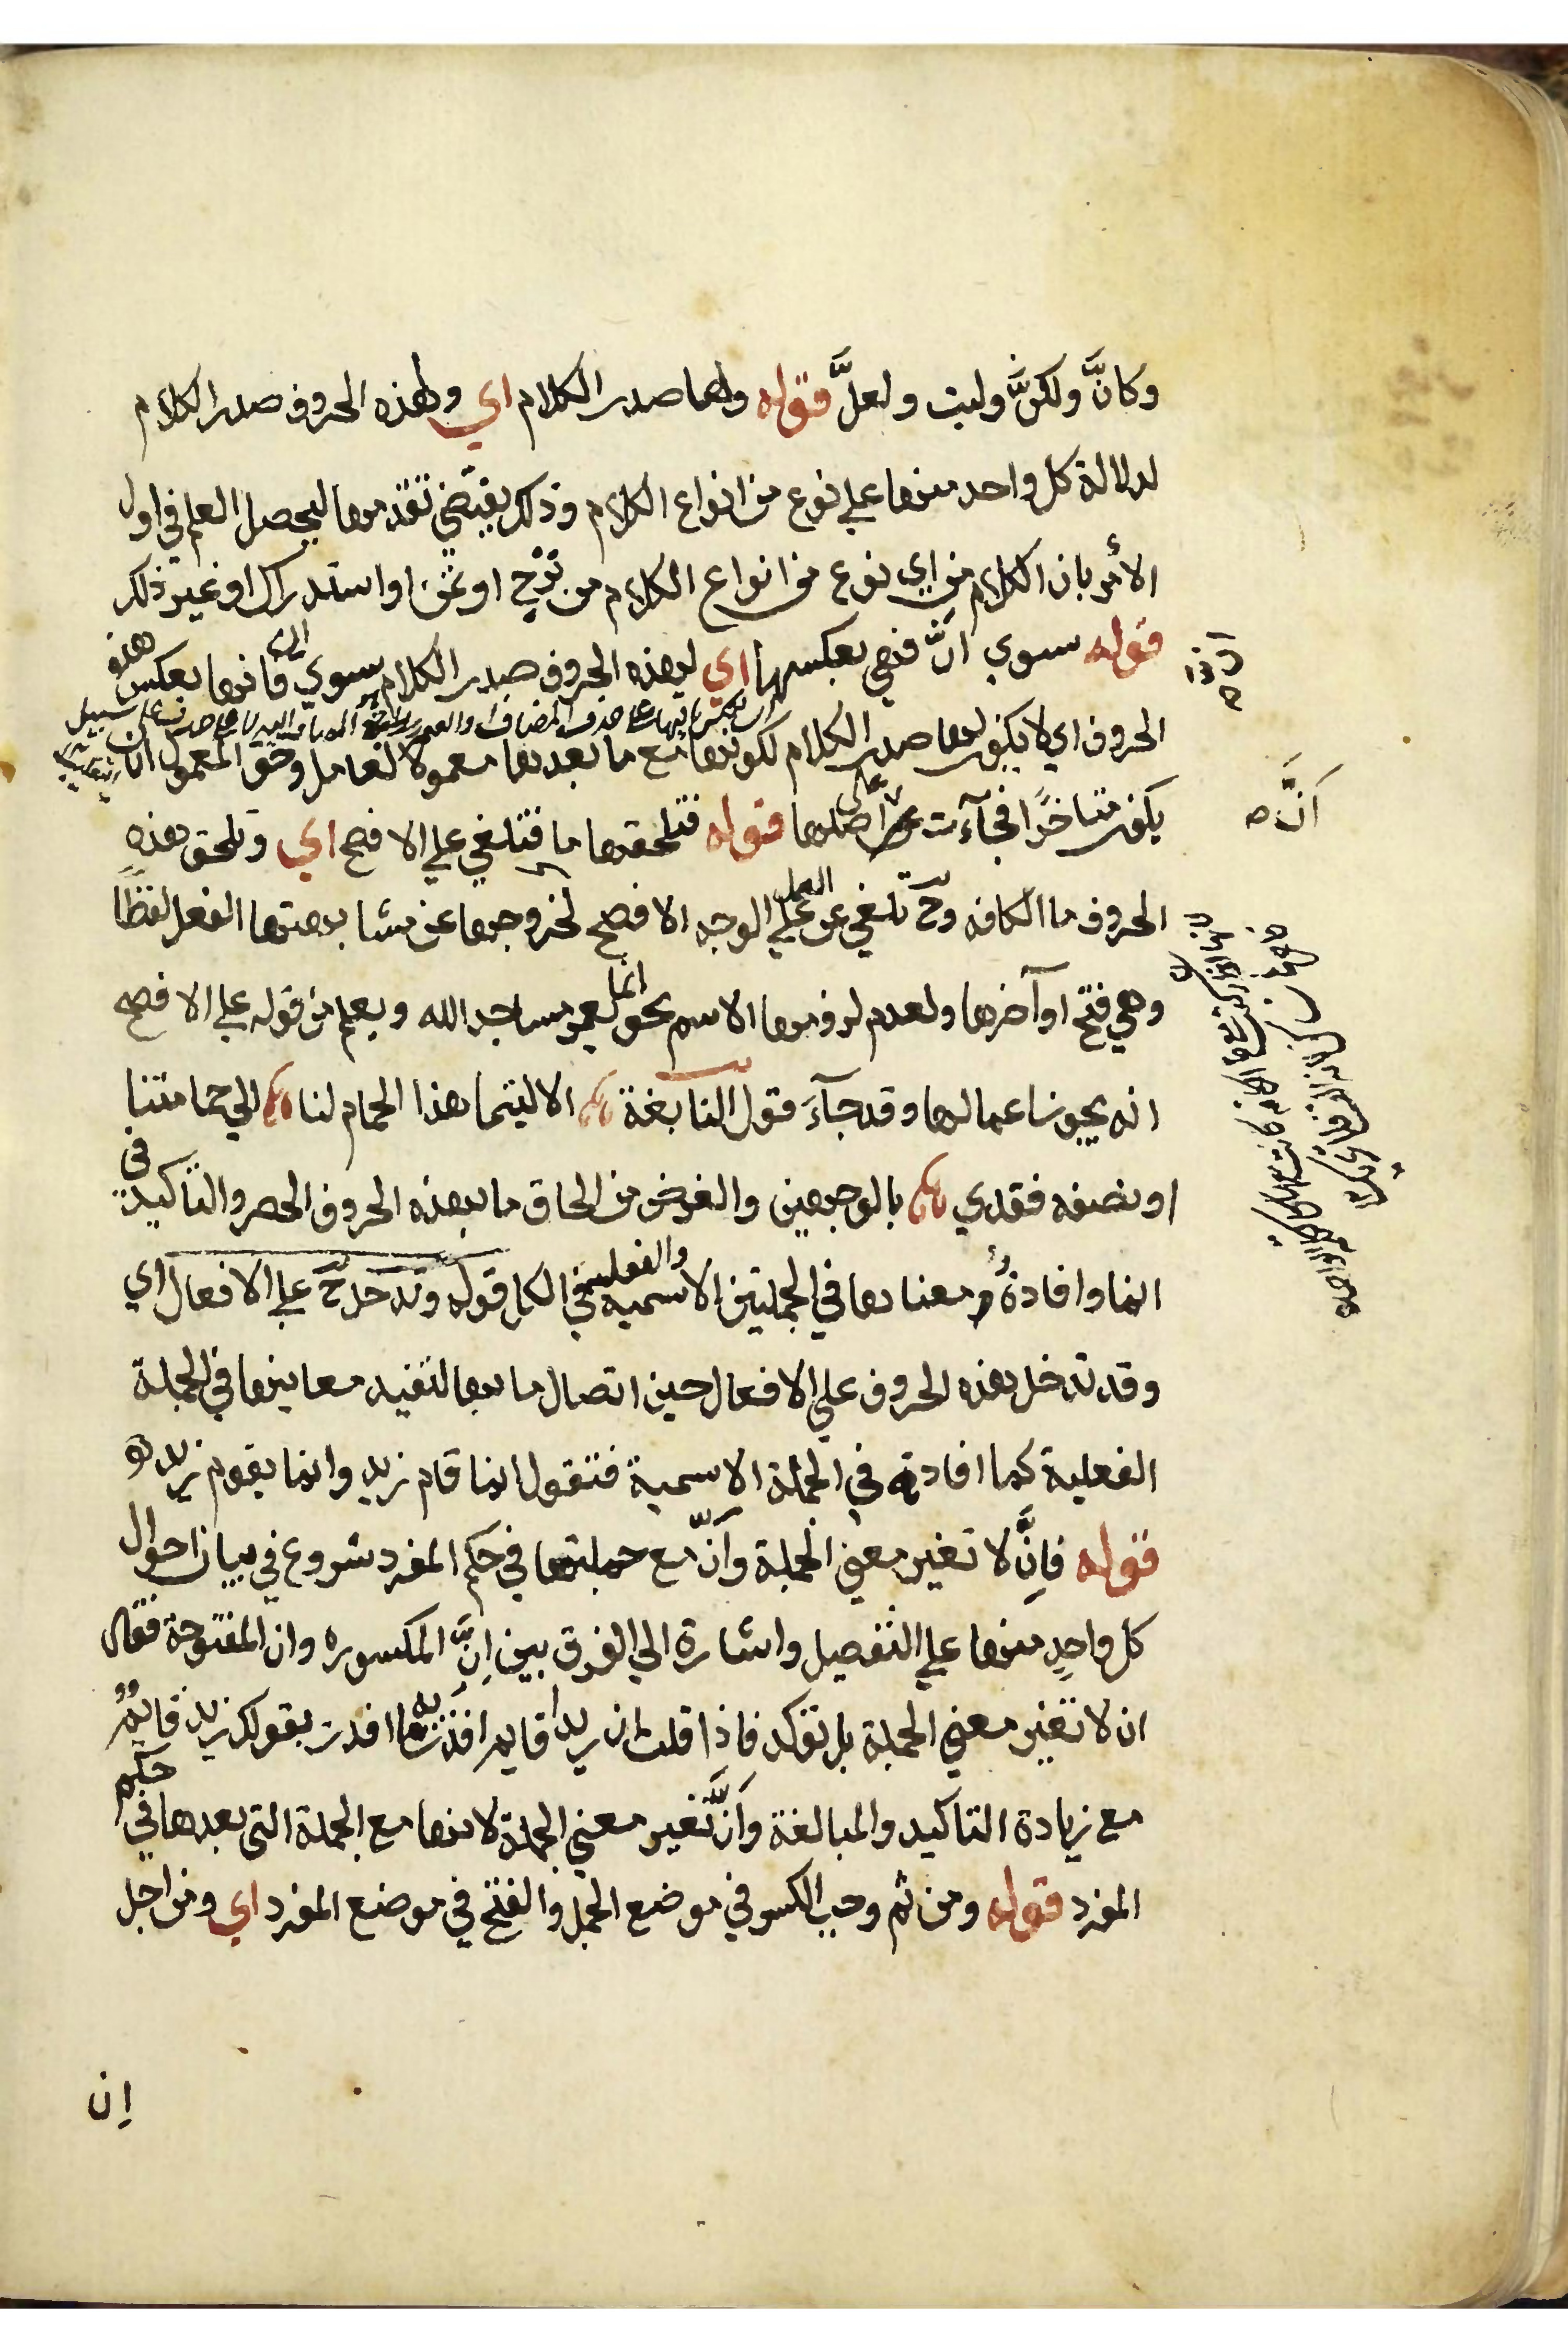 وكانَّ ولكنَّ وليت ولعلَّ قوله ولها صدر الكلام اي ولهذه الحروف صدر الكلام
لدلالة كل واحد منها علي نوع من انواع الكلام وذلك يقتضي تقدمها ليحصل العلم في اول
الأمر بان الكلام من اي نوع من انواع الكلام من ترجٍ او تمنٍ او استدراك او غير ذلك
قوله سوي انَّ فهي بعكسها اي لهذه الحروف صدر الكلام سوي فانها بعكس هذه
الحروف اي لا يكون لها صدر الكلام لكونها مع ما بعدها معمولا لعامل وحق المعمول ان
يكون متاخرًا فجآءت علي اصلها قوله فتلحقها ما فتلغي علي الافصح اي وتلحق هذه
الحروف ما الكافه وح تلغي عن العمل علي الوجه الافصح لخروجها عن مشابهتها الفعل لفظًا
وهي فتح اوآخرها ولعدم لزومها الاسم نحو انما يعمر مساجد الله ويعلم من قوله علي الافصح
انه يجوز اعمالها وقد جآءَ قول النابغة الا ليتما هذا الحمام لنا الي حمامتنا
او نصفه فقدي بالوجهين والغرض من الحاق ما بهذه الحروف الحصر والتاكيد في
انما وافادةُ معناها في الجملتين الاسميه والفعليه في الكل قوله وتدخل ح علي الافعال اي
وقد تدخل هذه الحروف علي الافعال حين اتصال ما بها لتفيد معانيها في الجملة
الفعلية كما افادته في الجملة الاسمية فتقول انما قام زيد وانما يقوم زيد
قوله فاِنَّ لا تغير معني الجملة وأنّ مع جملتها في حكم المفرد شروع في بيان احوال
كل واحدٍ منها علي التفصيل واشارة الي الفرق بين اِنَّ المكسوره وان المفتوحة فقال
ان لا تغير معني الجملة بل تؤكد فاذا قلت ان زيدا قايم افدت به ما افدت بقولك زيد قايمٌ
مع زيادة التاكيد والمبالغة وأنَّ تغير معني الجملة لانها مع الجملة التي بعدها في حكم
المفرد قوله ومن ثم وجب الكسر في موضع الجمل والفتح في موضع المفرد اي ومن اجل
اَنَّ
اِن